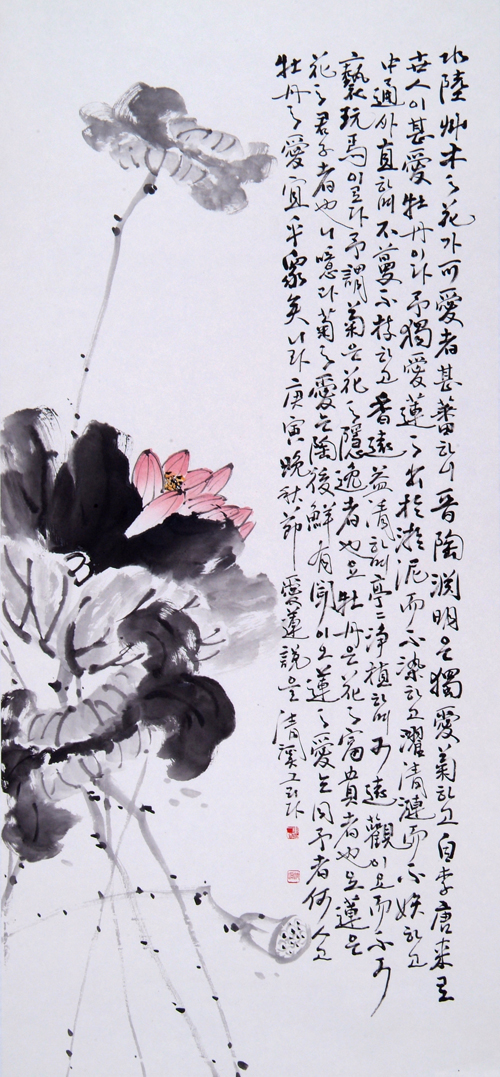 水陸艸木之花가可愛者甚蕃하니晉陶淵明은獨愛菊하고自李唐來로
世人이甚愛牡丹이라予獨愛蓮之出於淤泥而不染하고濯淸漣而不妖하고
中通外直하며不蔓不枝하고香遠益淸하며亭〻淨植하며可遠觀이요而不可
褻玩焉이로라予謂菊은花之隱逸者也요牡丹은花之富貴者也요蓮은
花之君子者也니噫라菊之愛는陶後鮮有聞이요蓮之愛는同予者何人고
牡丹之愛宜乎衆矣니라庚寅晩秋節愛蓮說을淸